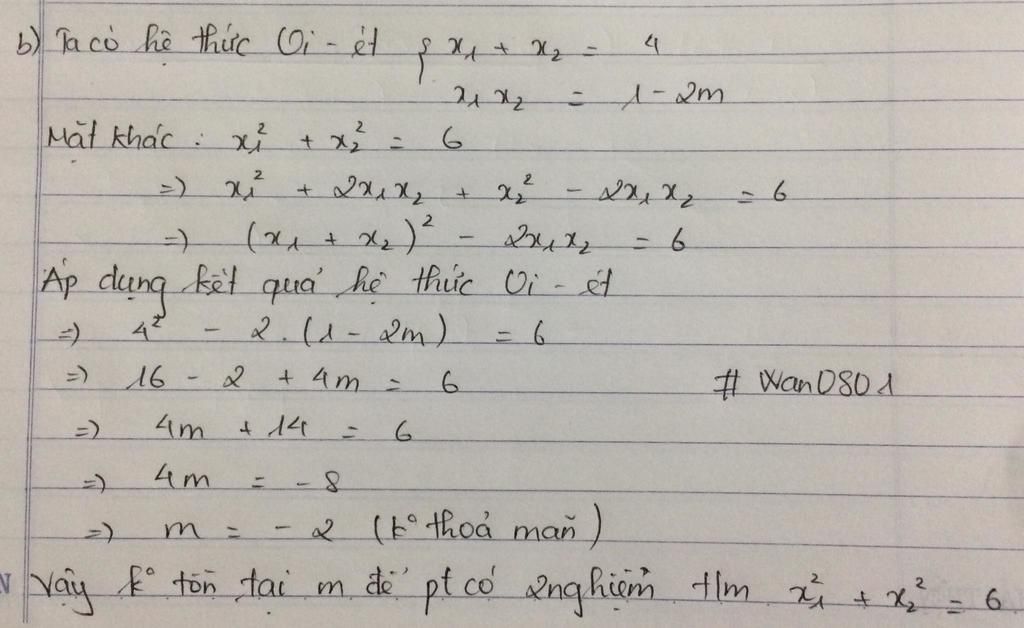 b) Ta có hệ thức Vi-ét { x₁ + x₂ = 4
x₁x₂ = 1 - 2m
Mặt khác : x₁² + x₂² = 6
=) x₁² + 2x₁x₂ + x₂² - 2x₁x₂ = 6
=) (x₁ + x₂)² - 2x₁x₂ = 6
Áp dụng kết quả hệ thức Vi-ét
=) 4² - 2.(1 - 2m) = 6
=) 16 - 2 + 4m = 6
# Wan0801
=) 4m + 14 = 6
=) 4m = -8
=) m = -2 (k° thoả mãn)
Vậy k° tồn tại m để pt có 2 nghiệm t/m x₁² + x₂² = 6